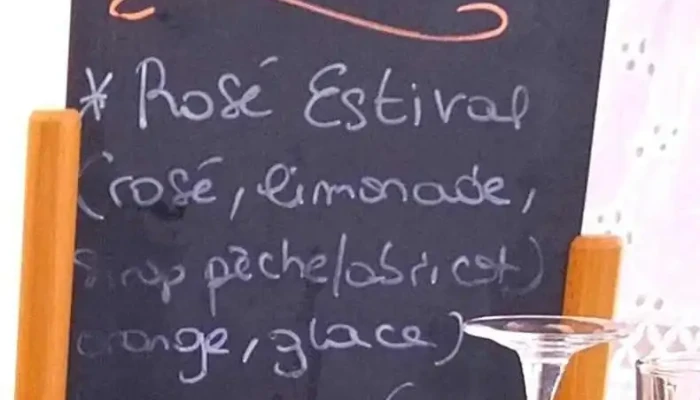 * Rosé Estival
(rosé, limonade,
sirop pêche/abricot)
orange, glace)